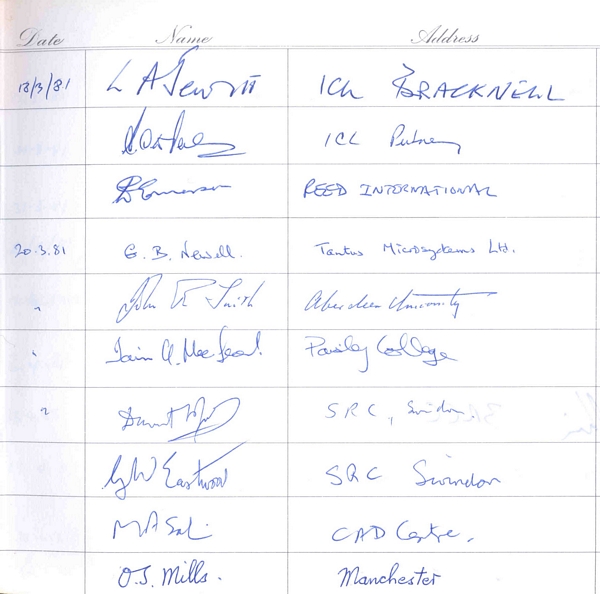 Date Name Address
18/3/81 L A Jewitt ICL BRACKNELL
ICL Putney
Emmerson REED INTERNATIONAL
20.3.81 G. B. Newell. Tantus Microsystems Ltd.
" John R Smith Aberdeen University
" Iain Paisley College
" SRC, Swindon
G W Eastwood SRC Swindon
M A CAD Centre.
O.J. Mills. Manchester